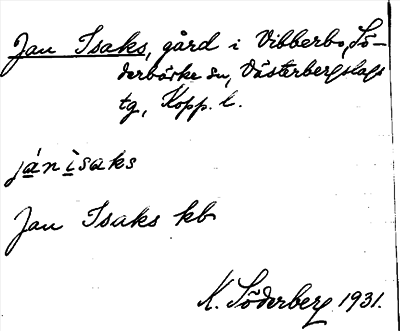 Jan Isaks, gård i Vibberbo, Sö-
derbärke sn, Västerbergslags
tg, Kopp. l.
jánìsaks
Jan Isaks kb
K. Söderberg 1931.